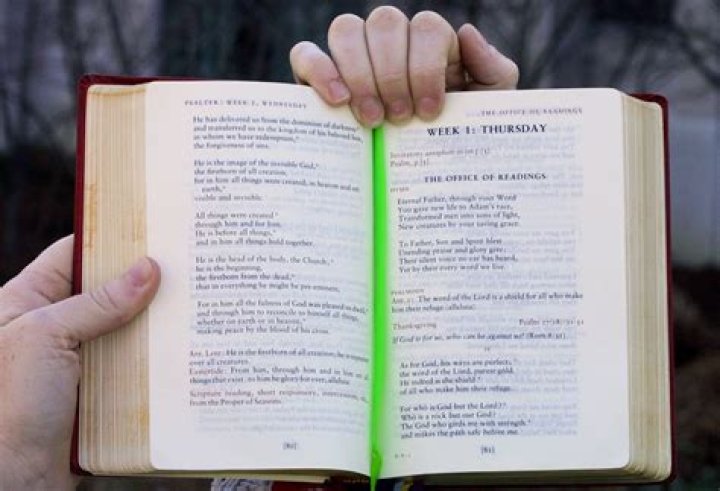 PSALTER: WEEK I, WEDNESDAY
He has delivered us from the dominion of darkness*
and transferred us to the kingdom of his beloved Son,
in whom we have redemption,*
the forgiveness of sins.
He is the image of the invisible God,*
the firstborn of all creation,
for in him all things were created, in heaven and on
earth,*
visible and invisible.
All things were created*
through him and for him.
He is before all things,*
and in him all things hold together.
He is the head of the body, the Church,*
he is the beginning,
the firstborn from the dead,*
that in everything he might be pre-eminent,
For in him all the fulness of God was pleased to dwell,*
and through him to reconcile to himself all things,
whether on earth or in heaven,
making peace by the blood of his cross.
Ant. Lent: He is the firstborn of all creation; he is supreme
over all creatures.
Eastertide: From him, through him and in him are all
things that exist: to him be glory for ever, alleluia.
Scripture reading, short responsory, intercessions,
from the Proper of Seasons
[80]
THE OFFICE OF READINGS
WEEK 1: THURSDAY
Invitatory antiphon
Psalm, p
THE OFFICE OF READINGS
HYMN
Eternal Father, through your Word
You gave new life to Adam's race,
Transformed men into sons of light,
New creatures by your saving grace.
To Father, Son and Spirit blest
Unending praise and glory give;
Their silent voice no ear has heard,
Yet by their every word we live.
PSALMODY
Ant. 1: The word of the Lord is a shield for all who make
him their refuge (alleluia).
Thanksgiving Psalm 17(18):31-51
If God is for us, who can be against us? (Rom 8:31)
As for God, his ways are perfect;*
the word of the Lord, purest gold.
He indeed is the shield*
of all who make him their refuge.
For who is God but the Lord?*
Who is a rock but our God?
The God who girds me with strength*
and makes the path safe before me.
[81]